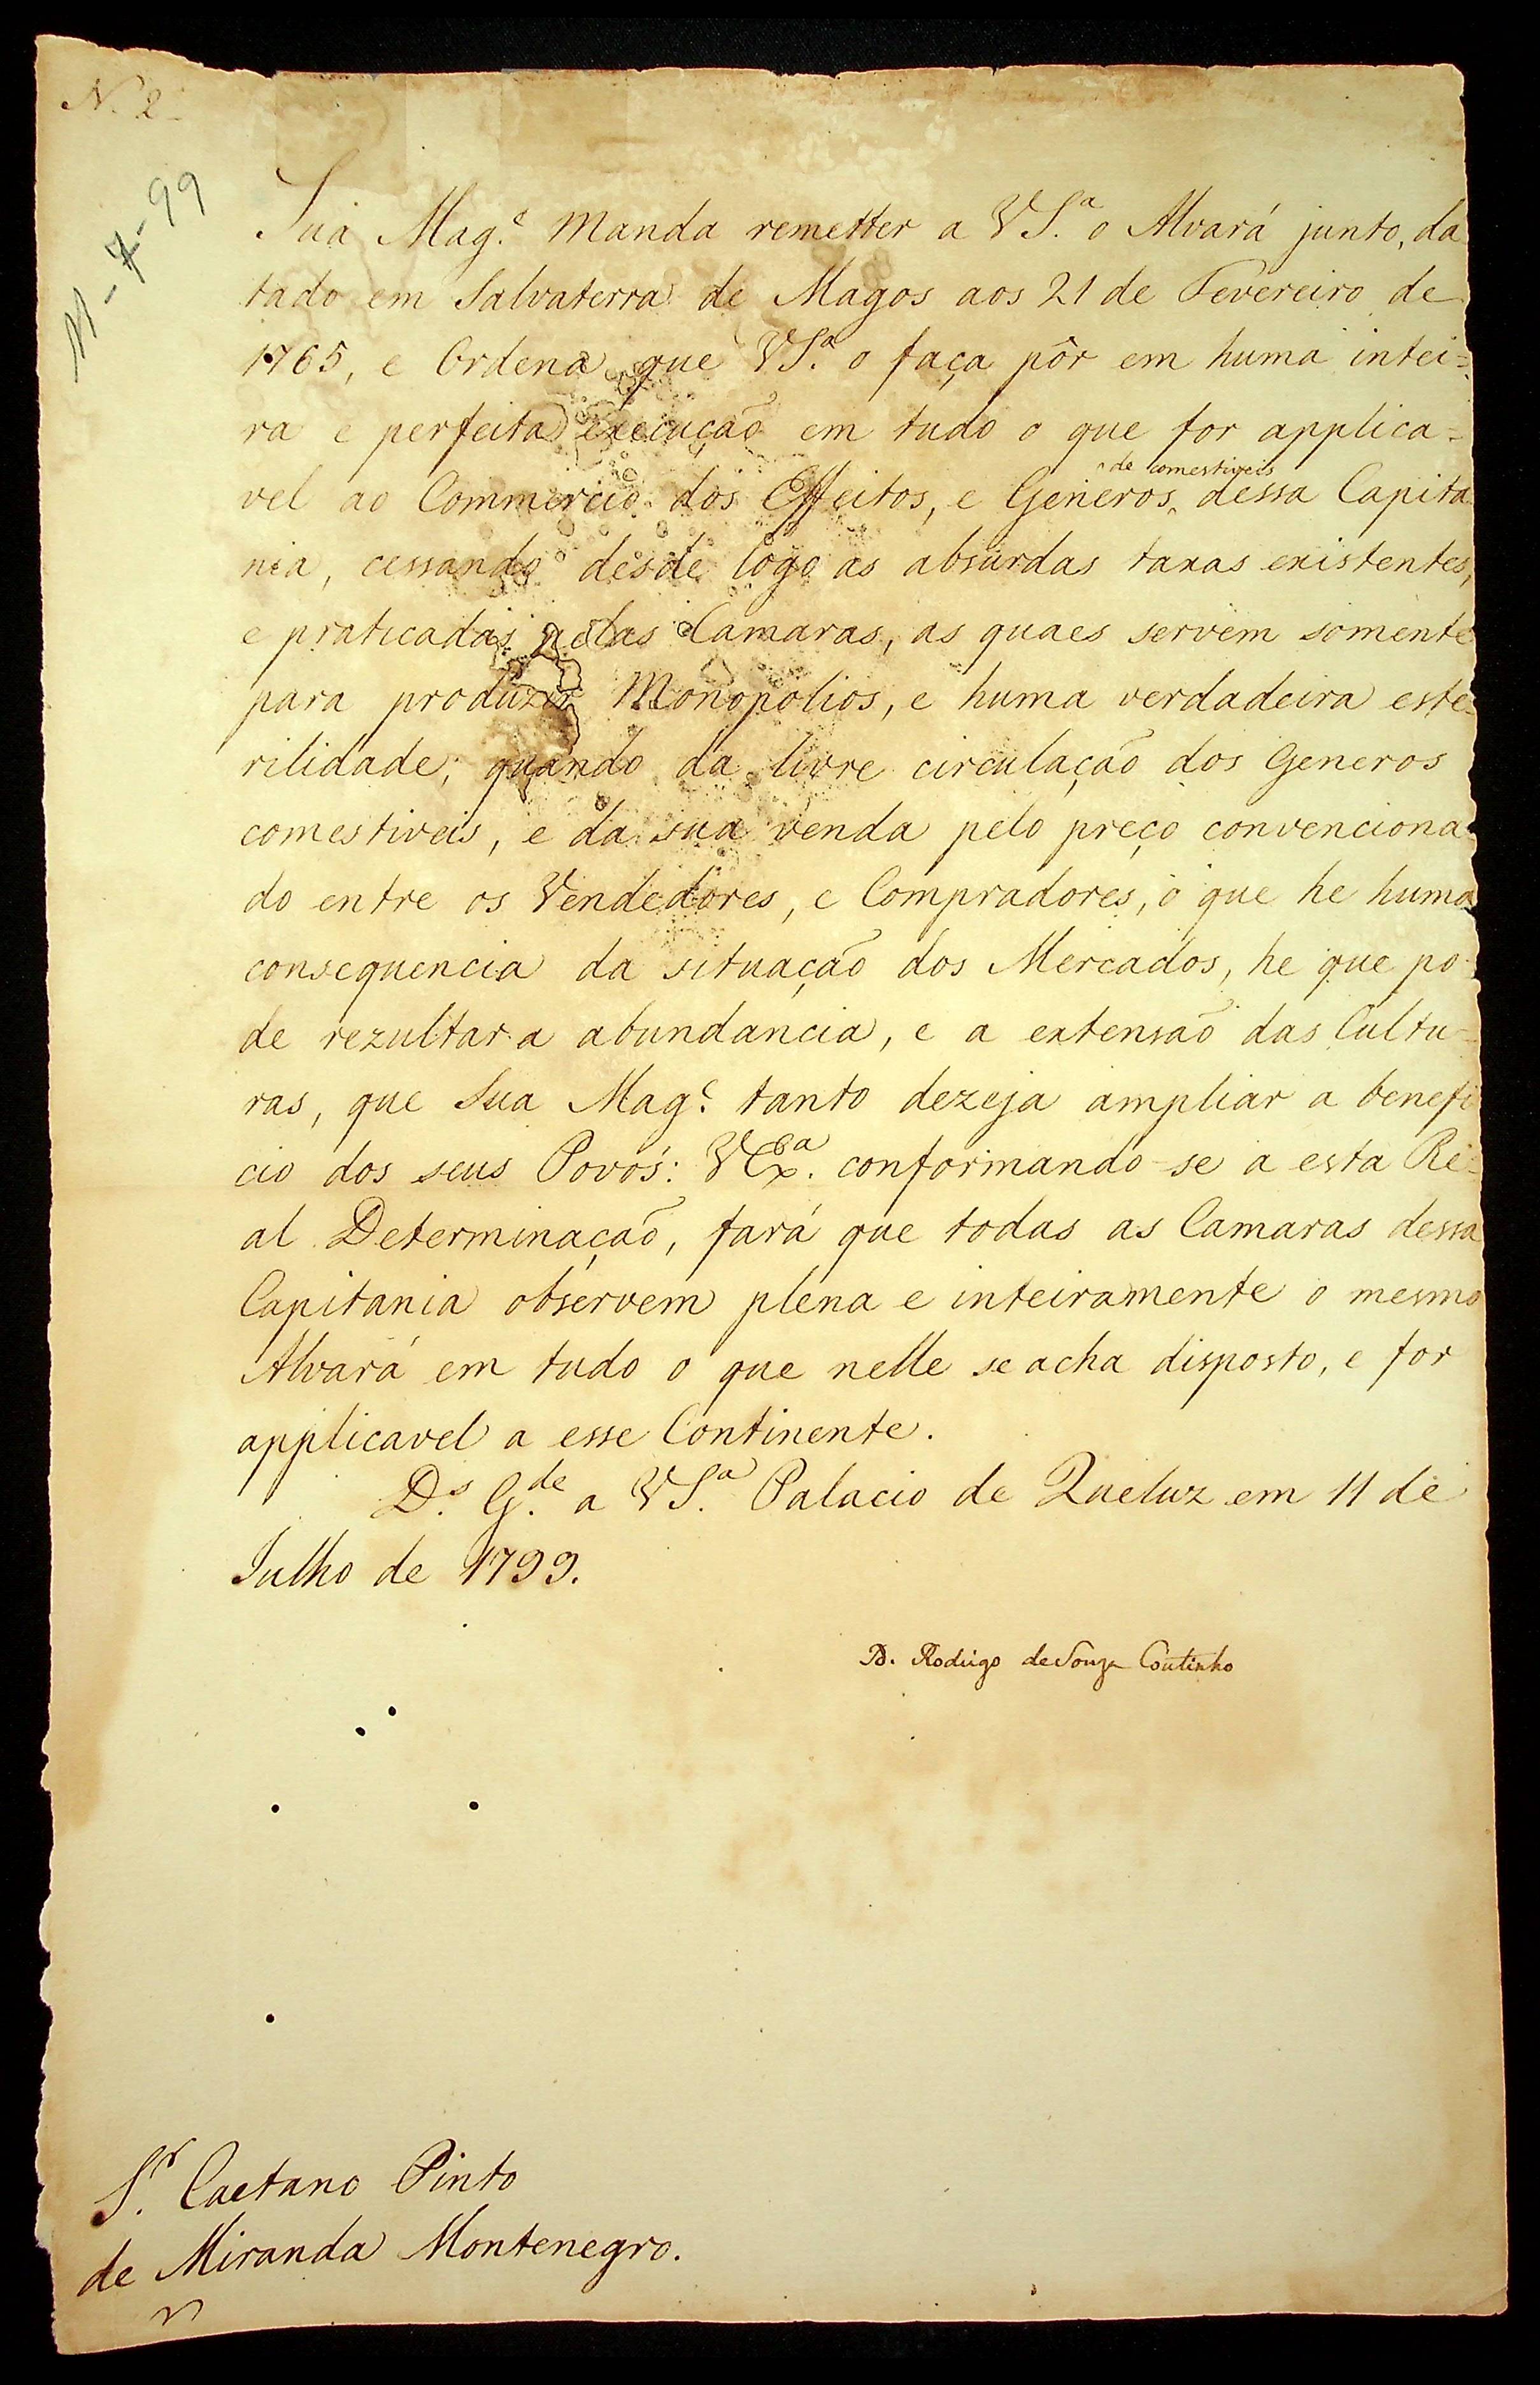 N. 2
11-7-99
Sua Mag.e Manda remetter a VS.a o Alvará junto, da
tado em Salvaterra de Magos aos 21 de Fevereiro de
1765, e Ordena que VS.a o faça pôr em huma intei=
ra e perfeita execução em tudo o que for applica=
de comestiveis
vel ao Commercio dos Effeitos, e Generos dessa Capita
nia, cessando desde logo as absurdas taxas existentes,
e praticadas pelas Camaras, as quaes servem somente
para produzir Monopolios, e huma verdadeira este=
rilidade; quando da livre circulação dos Generos
comestiveis, e da sua venda pelo preço convenciona
do entre os Vendedores, e Compradores, o que he huma
consequencia da situação dos Mercados, he que po=
de rezultar a abundancia, e a extensão das Cultu=
ras, que Sua Mag.e tanto dezeja ampliar a benefi
cio dos seus Povos: VEx.a conformando-se a esta Re=
al Determinação, fará que todas as Camaras dessa
Capitania observem plena e inteiramente o mesmo
Alvará em tudo o que nelle se acha disposto, e for
applicavel a esse Continente.
D.s G.de a VS.a Palacio de Queluz em 11 de
Julho de 1799.
D. Rodrigo de Souza Coutinho
S.r Caetano Pinto
de Miranda Montenegro.